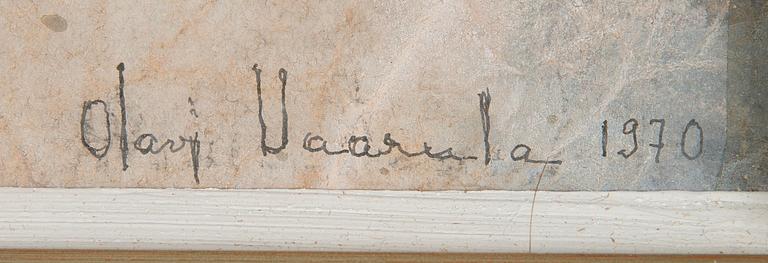 Olavi Vaarula 1970